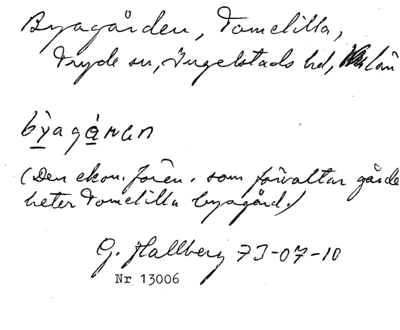 Byagården, Tomelilla,
Tryde sn, Ingelstads hd, län
bỳagá̱ʀ̥en
(Den ekon. fören. som förvaltar gården
heter Tomelilla byagård.)
G. Hallberg 73-07-10
Nr 13006